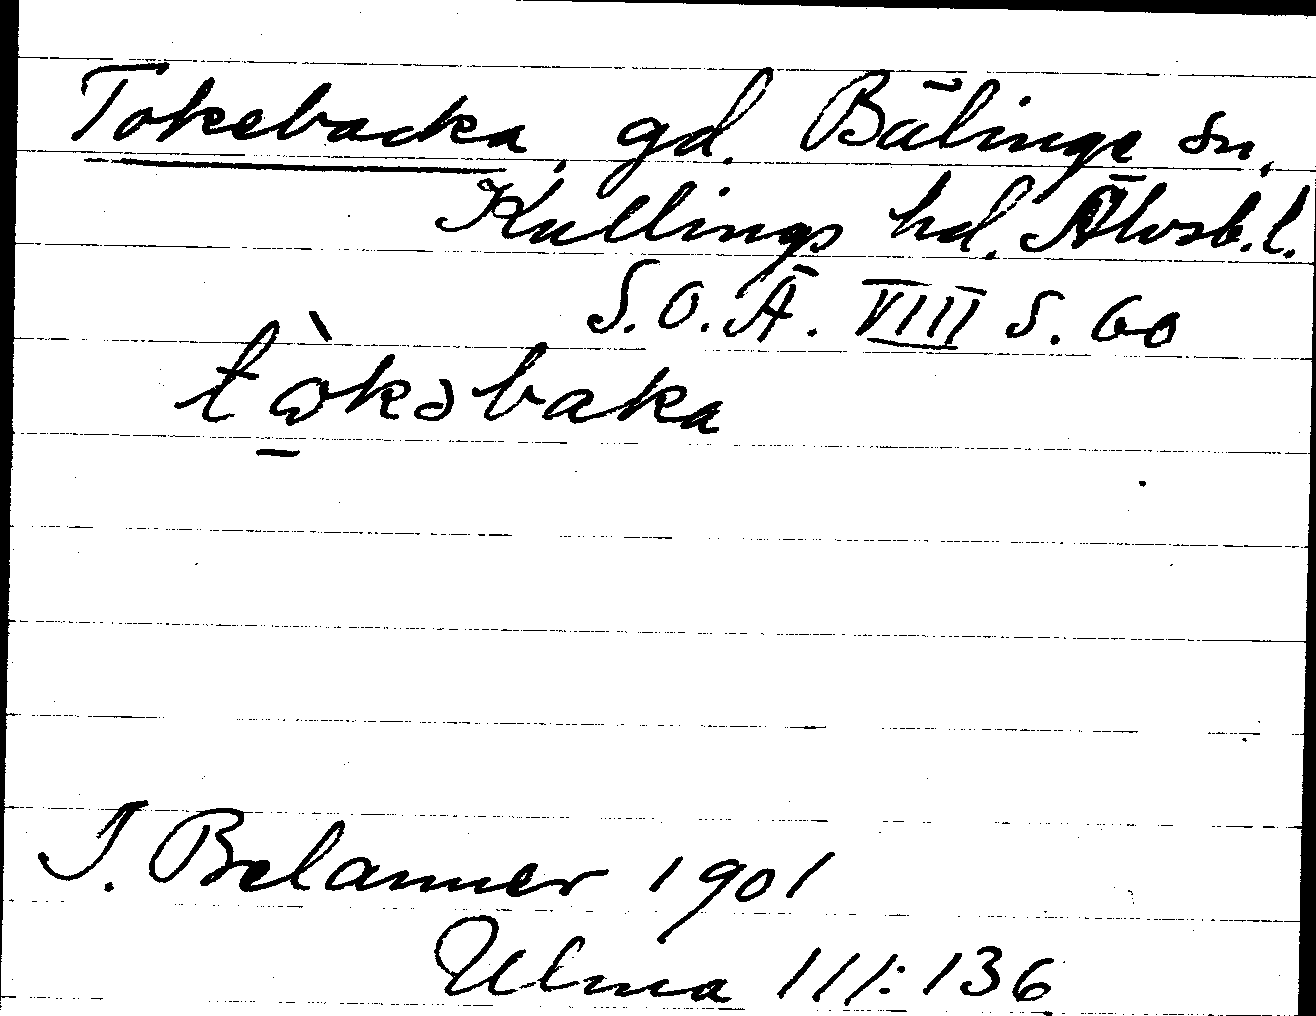 Tokebacka, gd. Bälinge sn.
Kullings hd. Älvsb. l.
S. O. Ä. VIII S. 60
tò̱kəbaka
J. Belanner 1901
Ulma III: 136